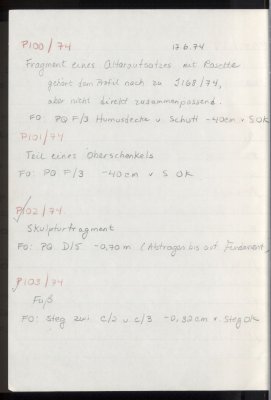 P100/74 17.6.74
Fragment eines Altaraufsatzes mit Rosette
gehört dem Profil nach zu I168/74,
aber nicht direkt zusammenpassend.
FO: PQ F/3 Humusdecke u. Schutt -40cm v SOK
P101/74
Teil eines Oberschenkels
FO: PQ F/3 -40cm v SOK
P102/74
Skulpturfragment
FO: PQ D/5 -0,70m (Abtragen bis ant. Fundament)
P103/74
Fuß
FO: Steg zwi. C/2 u C/3 -0,32cm v. Steg OK